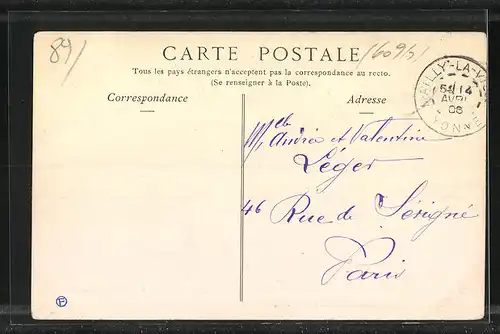 89/
CARTE POSTALE
Tous les pays étrangers n'acceptent pas la correspondance au recto.
(Se renseigner à la Poste).
Correspondance
Adresse
MAILLY-LA-VILLE
14
AVRIL
08
YONNE
Mlles André et Valentine
Léger
46 Rue de Sérigné
Paris
F